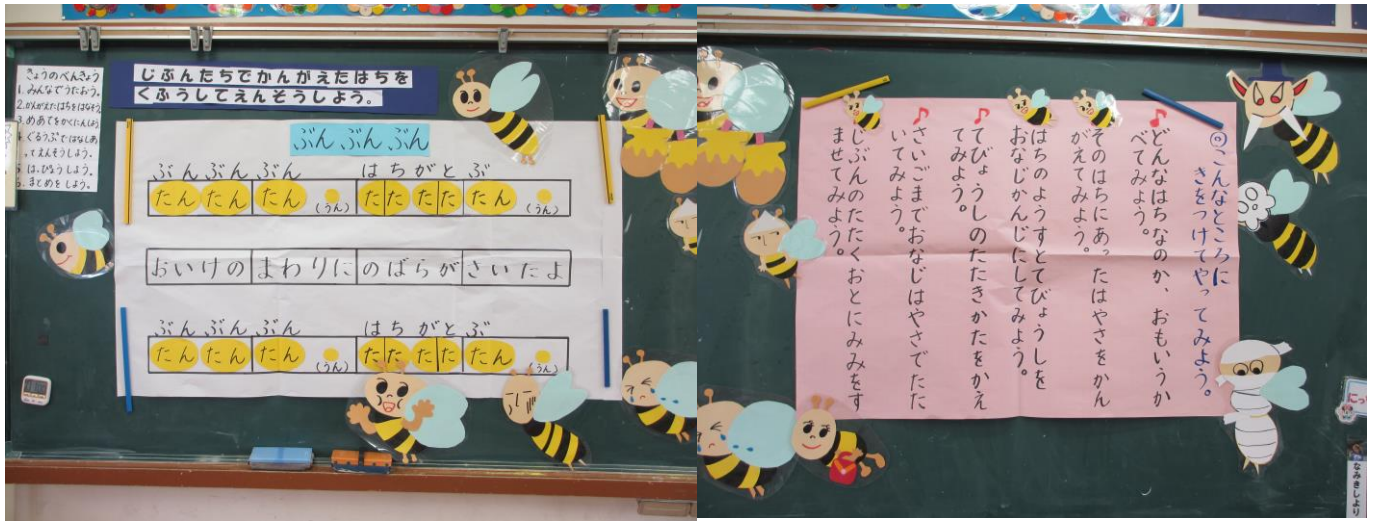 きょうのべんきょう
1.みんなでうたおう。
2.かんがえたはちをはなそう
3.めあてをかくにんしよう
4.ぐるうぷではなしあ
ってえんそうしよう。
5.はっぴょうしよう。
6.まとめをしよう。
じぶんたちでかんがえたはちを
くふうしてえんそうしよう。
ぶんぶんぶん
ぶんぶんぶん はちがとぶ
たん たん たん (うん) たたたた たん (うん)
おいけの まわりに のばらが さいたよ
ぶんぶんぶん はちがとぶ
たん たん たん (うん) たたたた たん (うん)
◎こんなところに
きをつけてやってみよう。
♪どんなはちなのか、おもいうか
べてみよう。
そのはちにあったはやさをかん
がえてみよう。
はちのようすとてびょうしを
おなじかんじにしてみよう。
♪てびょうしのたたきかたをかえ
てみよう。
♪さいごまでおなじはやさでたた
いてみよう。
じぶんのたたくおとにみみをす
ませてみよう。
にっ
なみきしより